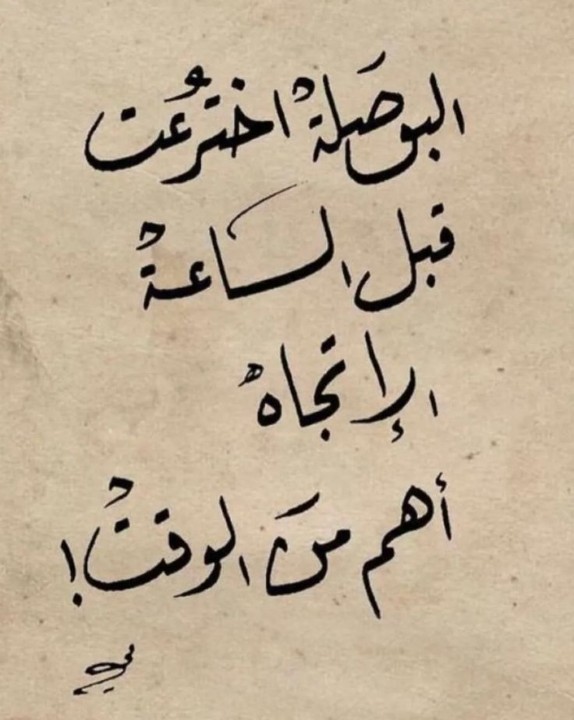 البوصلةُ اخترُعت
قبل الساعةُ
الإتجاهُ
أهم منَ الوقتُ!